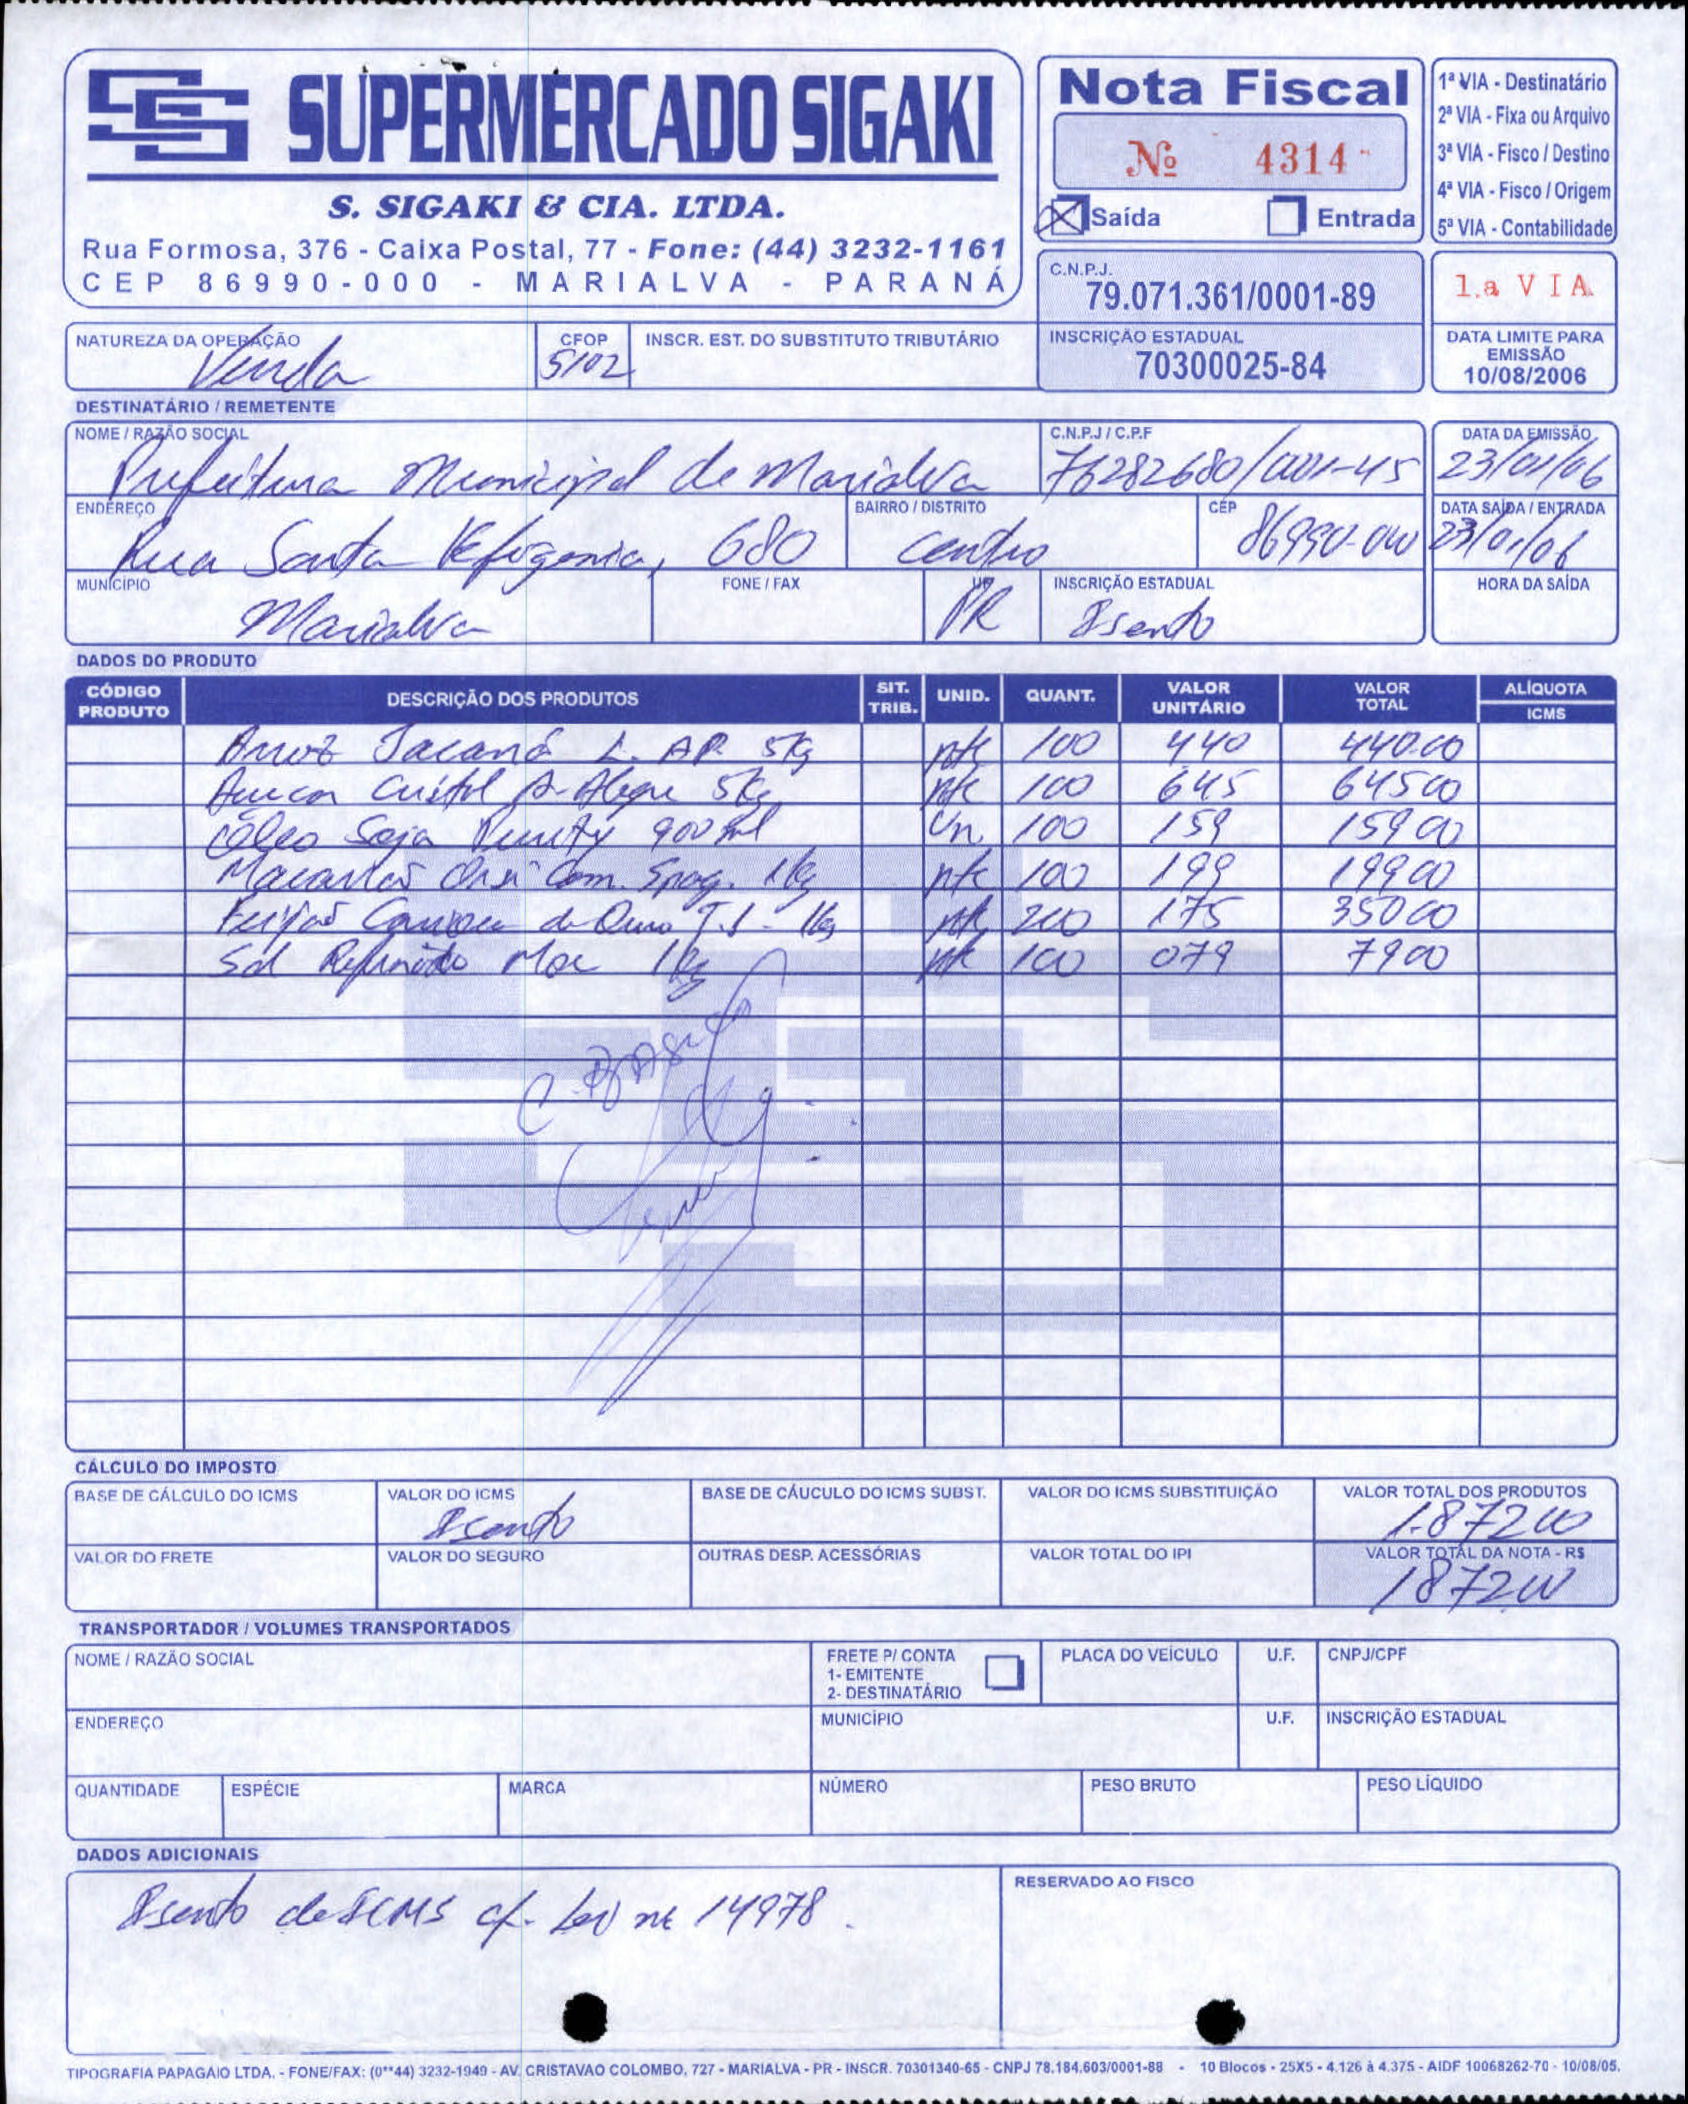 SUPERMERCADO SIGAKI
S. SIGAKI & CIA. LTDA.
Rua Formosa, 376 - Caixa Postal, 77 - Fone: (44) 3232-1161
CEP 86990-000 - MARIALVA - PARANÁ
Nota Fiscal
Nº 4314
Saída Entrada
1ª VIA - Destinatário
2ª VIA - Fixa ou Arquivo
3ª VIA - Fisco / Destino
4ª VIA - Fisco / Origem
5ª VIA - Contabilidade
C.N.P.J.
79.071.361/0001-89
1.a VIA
NATUREZA DA OPERAÇÃO
Venda
CFOP
5102
INSCR. EST. DO SUBSTITUTO TRIBUTÁRIO
INSCRIÇÃO ESTADUAL
70300025-84
DATA LIMITE PARA
EMISSÃO
10/08/2006
DESTINATÁRIO / REMETENTE
NOME / RAZÃO SOCIAL
Prefeitura Municipal de Marialva
C.N.P.J / C.P.F
76282680/0001-45
DATA DA EMISSÃO
23/01/06
ENDEREÇO
Rua Santa Efigenia, 680
BAIRRO / DISTRITO
Centro
CEP
86990-000
DATA SAÍDA / ENTRADA
23/01/06
MUNICÍPIO
Marialva
FONE / FAX
UF
PR
INSCRIÇÃO ESTADUAL
Isento
HORA DA SAÍDA
DADOS DO PRODUTO
CÓDIGO PRODUTO DESCRIÇÃO DOS PRODUTOS SIT. TRIB. UNID. QUANT. VALOR UNITÁRIO VALOR TOTAL ALÍQUOTA ICMS
Arroz Jacanã L. AP. 5Kg pte 100 440 440.00
Açucar Cristal A-Alegre 5Kg pte 100 645 645 00
Oleo Soja Purity 900 ml Un 100 159 159 00
Macarrão Com. Spag. 1Kg pte 100 199 199 00
Feijão de Ouro T.1 - 1Kg pte 200 175 350 00
Sal Refinado Moc 1Kg pte 100 079 79 00
CÁLCULO DO IMPOSTO
BASE DE CÁLCULO DO ICMS
VALOR DO ICMS
Isento
BASE DE CÁUCULO DO ICMS SUBST.
VALOR DO ICMS SUBSTITUIÇÃO
VALOR TOTAL DOS PRODUTOS
1.872 00
VALOR DO FRETE
VALOR DO SEGURO
OUTRAS DESP. ACESSÓRIAS
VALOR TOTAL DO IPI
VALOR TOTAL DA NOTA - R$
1872 00
TRANSPORTADOR / VOLUMES TRANSPORTADOS
NOME / RAZÃO SOCIAL
FRETE P/ CONTA
1- EMITENTE
2- DESTINATÁRIO
PLACA DO VEÍCULO
U.F.
CNPJ/CPF
ENDEREÇO
MUNICÍPIO
U.F.
INSCRIÇÃO ESTADUAL
QUANTIDADE
ESPÉCIE
MARCA
NÚMERO
PESO BRUTO
PESO LÍQUIDO
DADOS ADICIONAIS
Isento de ICMS cf. Lei nº 14978.
RESERVADO AO FISCO
TIPOGRAFIA PAPAGAIO LTDA. - FONE/FAX: (0**44) 3232-1949 - AV. CRISTAVAO COLOMBO, 727 - MARIALVA - PR - INSCR. 70301340-65 - CNPJ 78.184.603/0001-88 - 10 Blocos - 25X5 - 4.126 à 4.375 - AIDF 10068262-70 - 10/08/05.